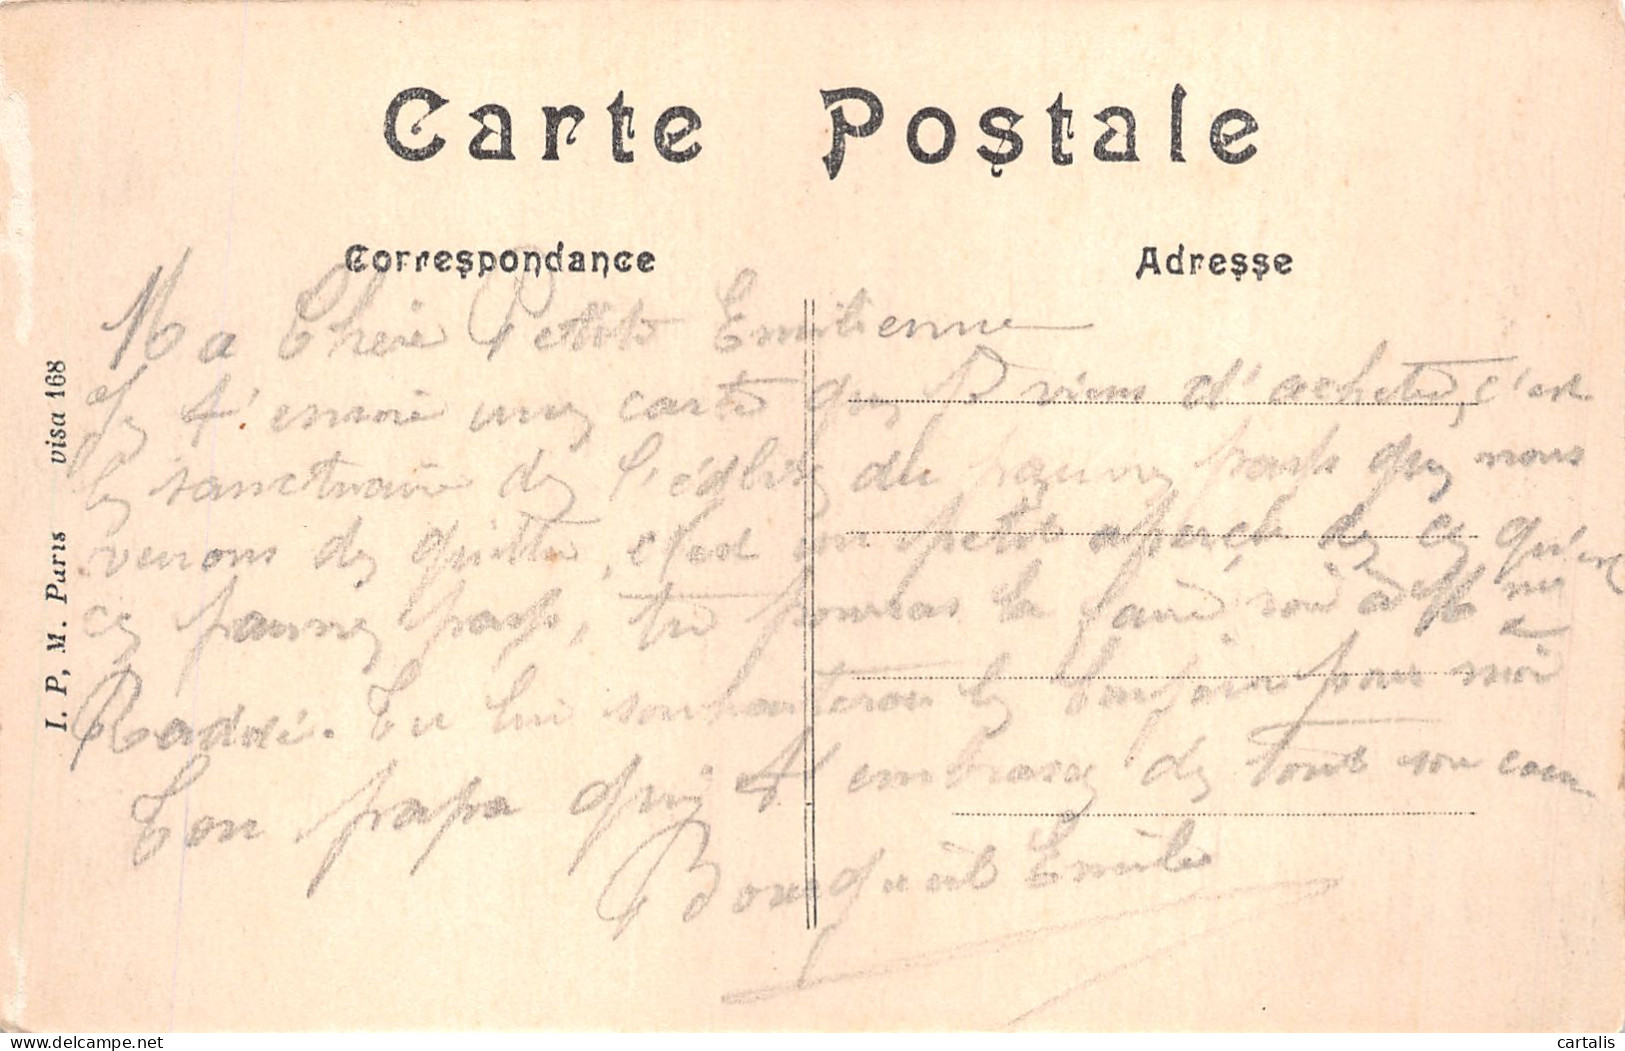 Carte Postale
Correspondance
Adresse
Ma Chère Petite Emilienne
Je t'envoie une carte que je viens d'acheter, c'est
le sanctuaire de l'église du pauvre pays que nous
venons de quitter, c'est un petit aperçu de ce qu'est
ce pauvre pays, tu pourras la faire voir à
Tu lui souhaiteras le bonjour pour moi
Ton papa qui t'embrasse de tout son cœur
Emile
I. P. M. Paris visa 168
cartalis